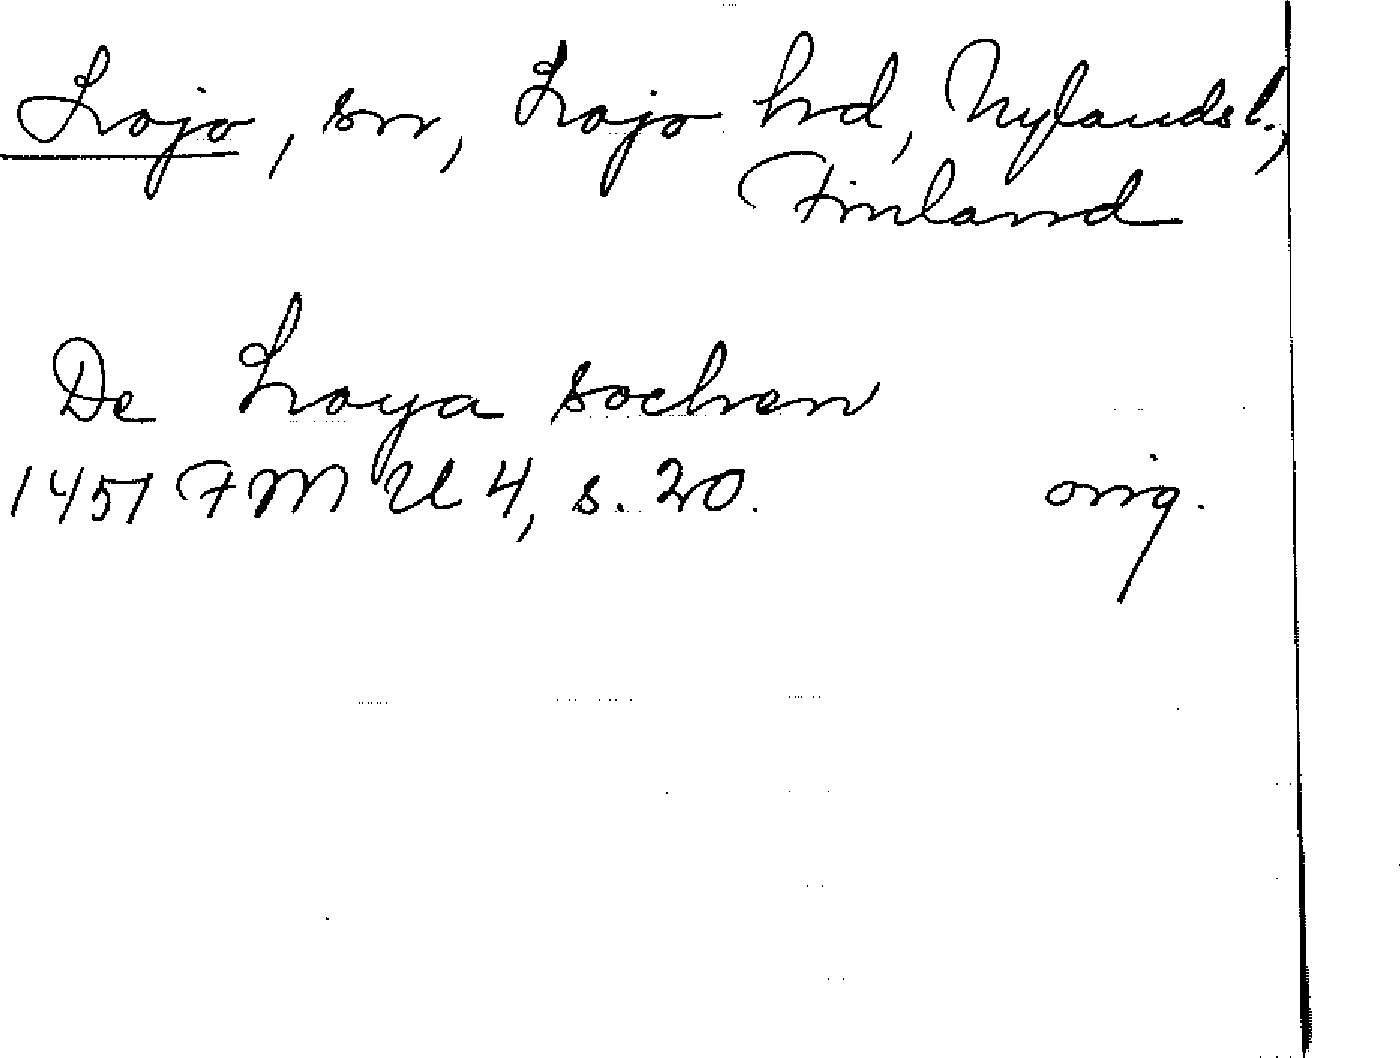 Lojo, sn, Lojo hd, Nylandsl.,
Finland
De Loya sochen
1451 FMU 4, s. 20. orig.